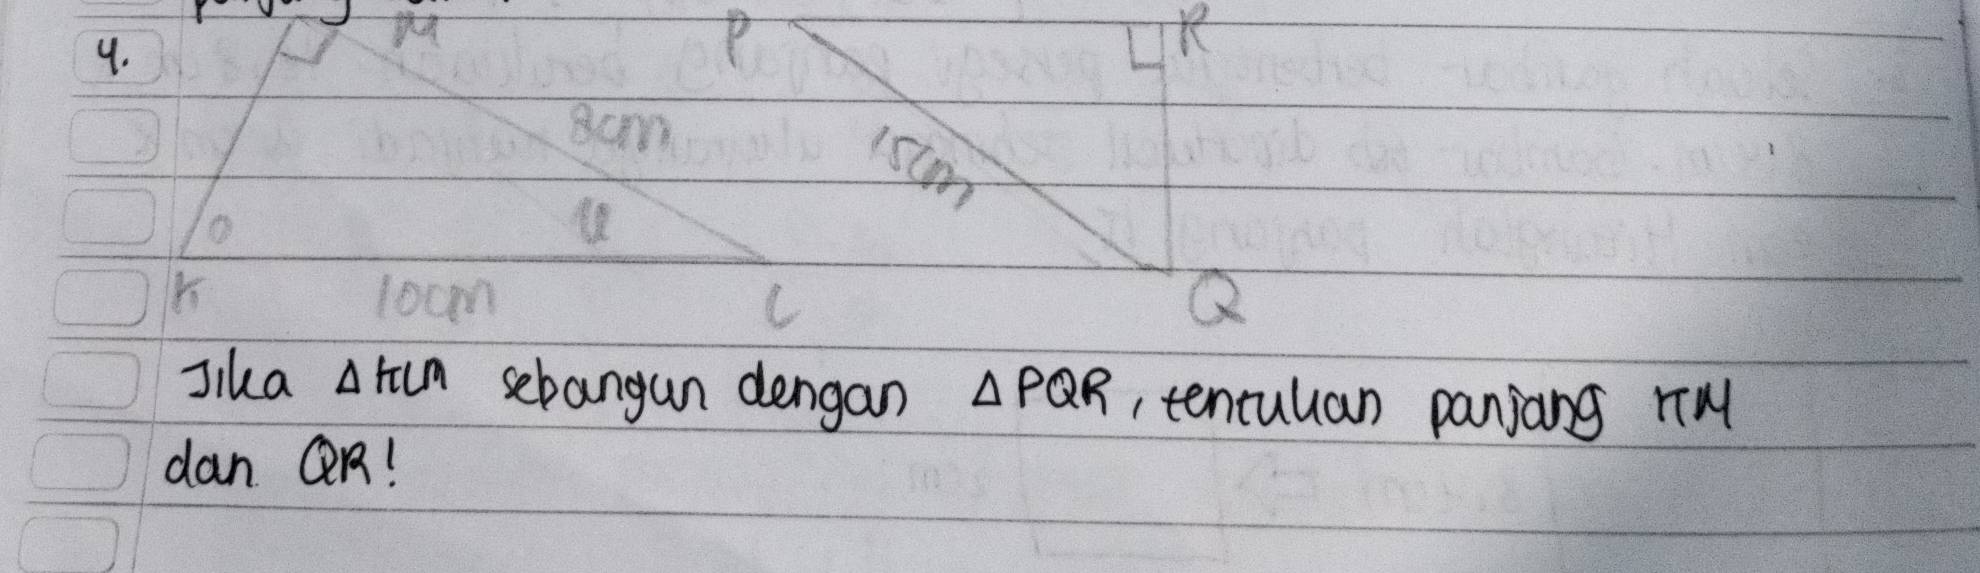 4.
M
P
R
8cm
15cm
K
10cm
L
Q
Jika Δ KLM sebangun dengan Δ PQR, tentukan panjang KM
dan QR!